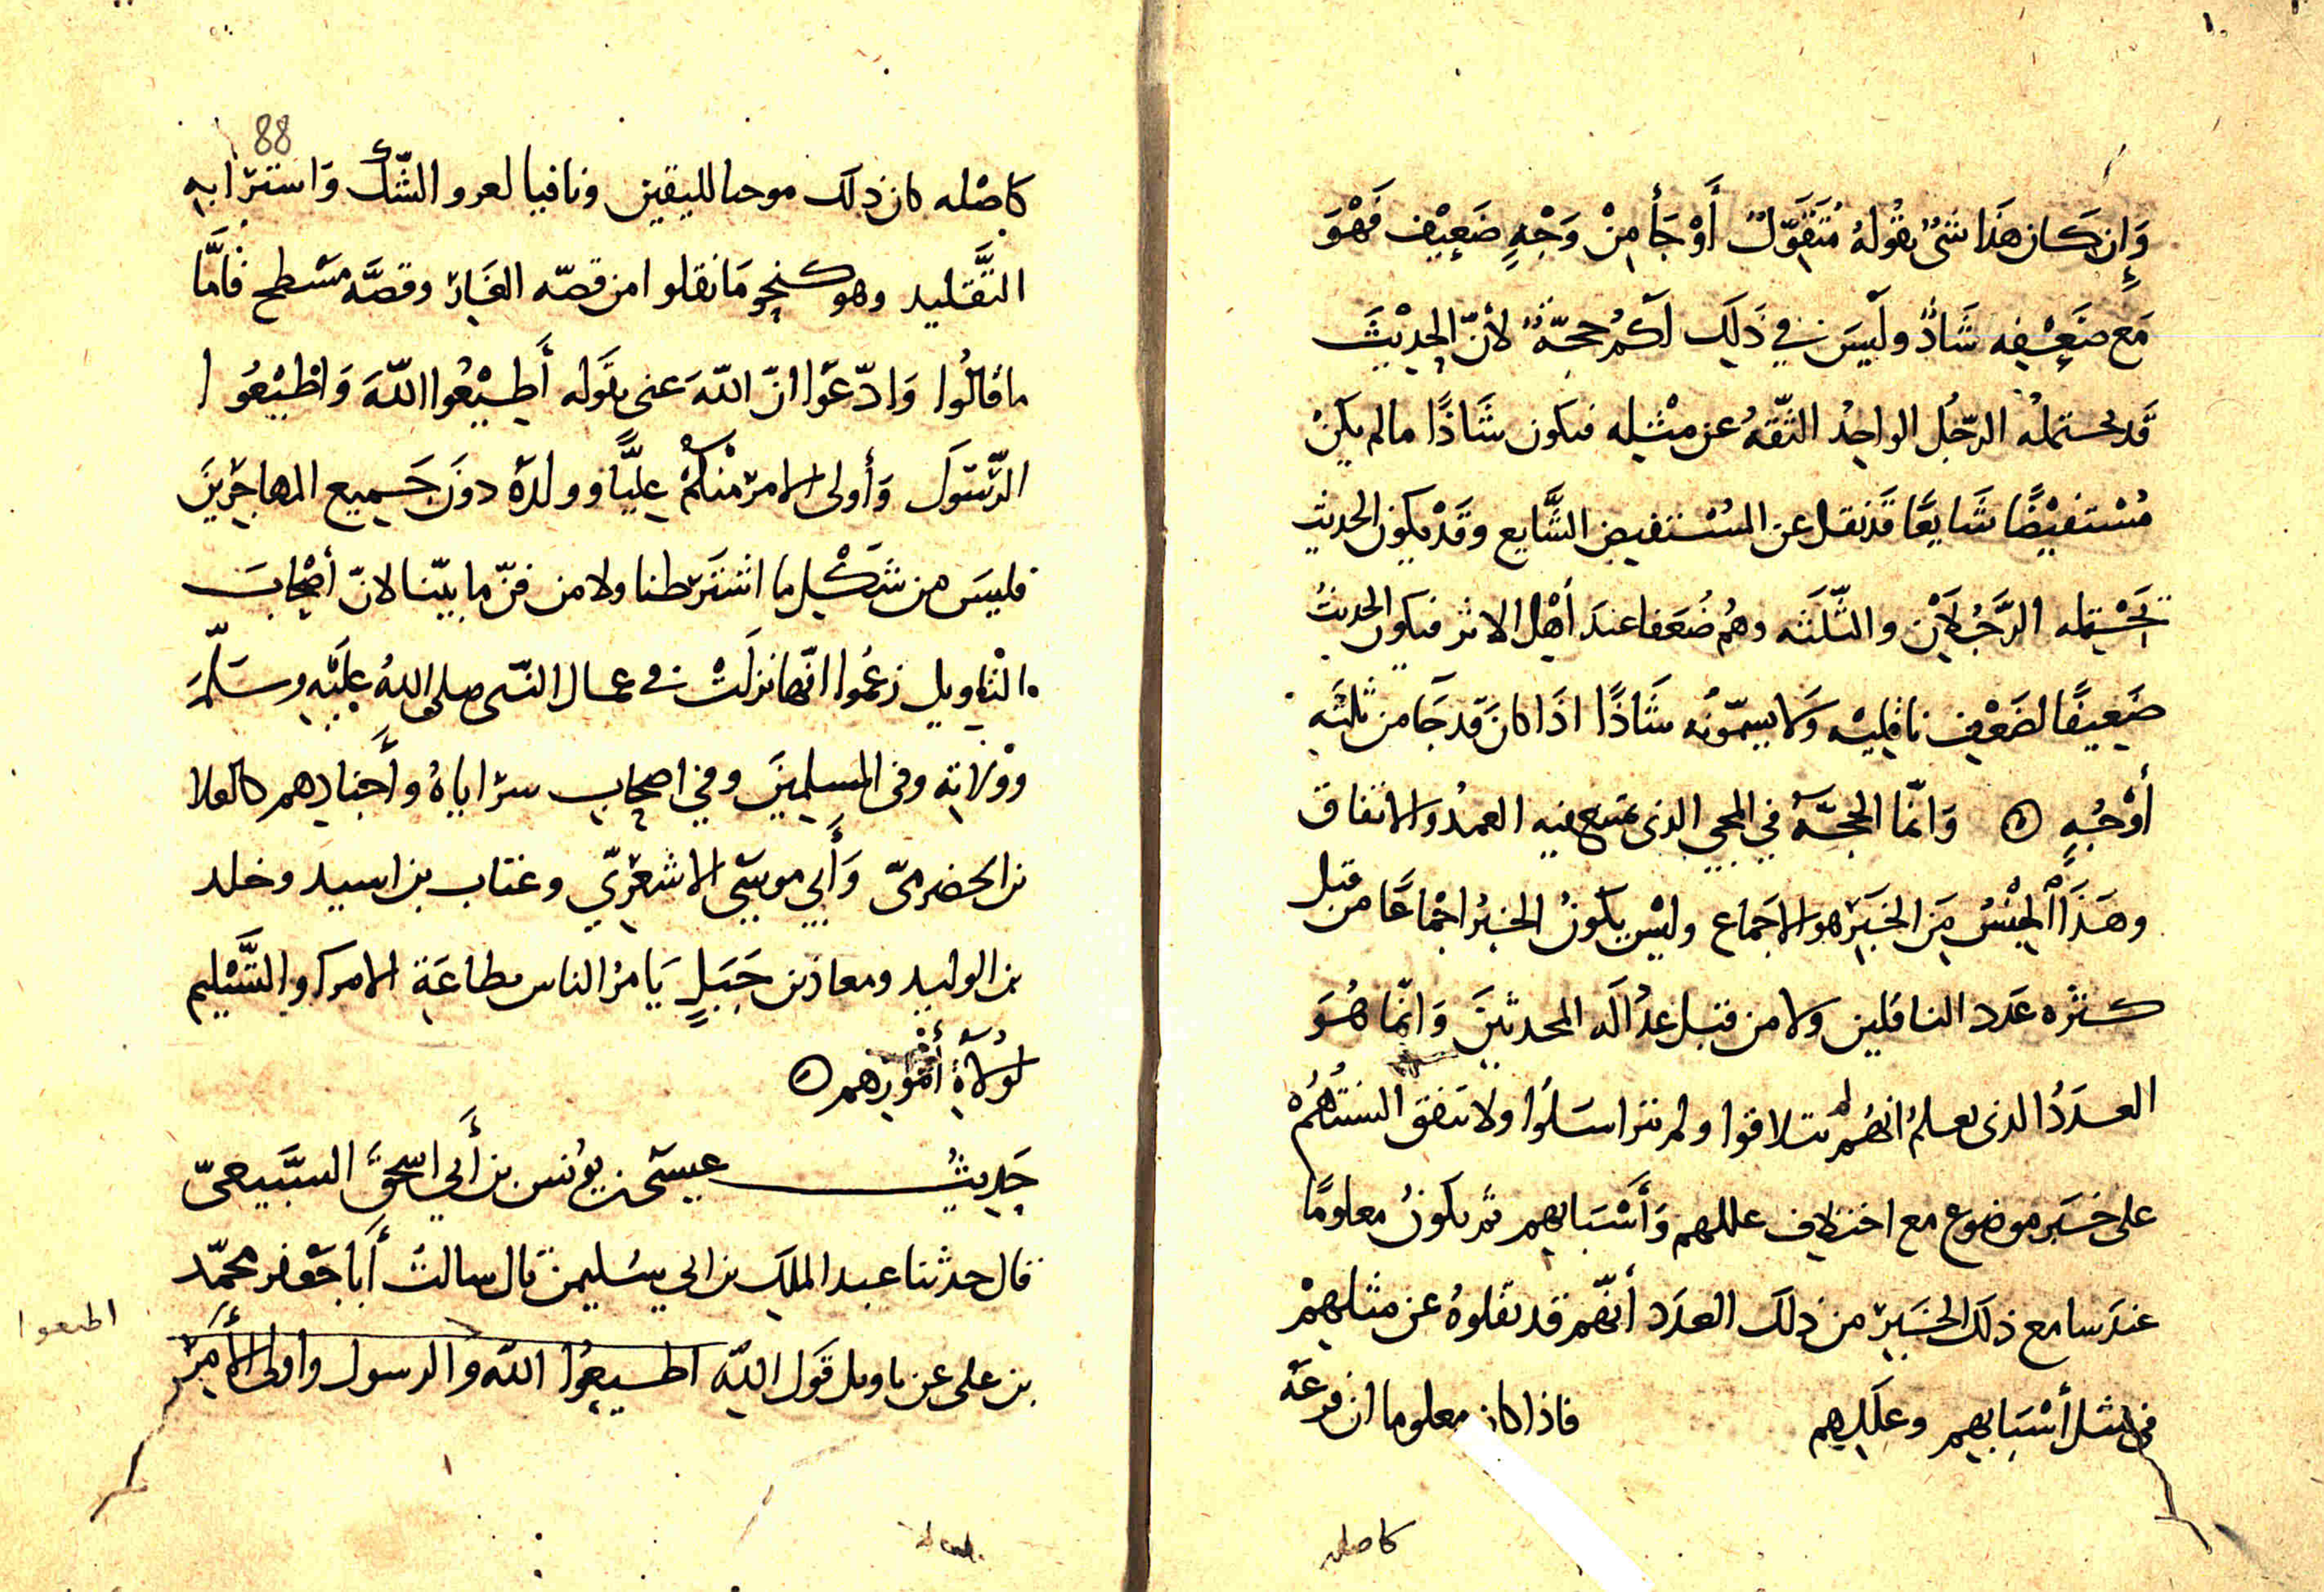 وَإِن كَان هَذَا شئ يقُولهُ مُتَقَوّلٌ أَوْ جَأ مِنْ وَجْهٍ ضَعِيْف فَهْوَ
مَع ضَعْفِه شَاذٌّ ولَيسَ في ذَلِكَ لكُم حجّةٌ لأنّ الحدِيْثَ
قَد يحتمله الرّجُل الواحِدُ الثّقةُ عن مثْلِه فيكون شَاذًا ما لم يكنْ
مُسْتفيْضًا شَايعًا قَد نقل عن المسْتفيض الشَّايع وقَدْ يكون الحديث
يَحْتمله الرَّجُلَيْن والثّلثه وهُم ضُعَفا عندَ أهْل الاثر فيكون الحديثُ
ضَعِيفًا لضَعْفِ ناقِليْه وَلا يسمّونُه شَاذًا اذَا كانَ قَد جَا من ثلثَه
أَوْجُهٍ وَانّما الحجّة في المجي الذى يمتنع فيه العمدُ والاتفاق
وهَذَا الجِنْسُ مِنَ الخبَرِ هو الاجماع وليْس يكونُ الخبرُ اجْماعًا من قبل
كثره عَدد الناقلين ولا من قبل عدَاله المحدثينَ وَانّما هُوَ
العدَدُ الذى يعلمُ انهُم لم يتلاقوا ولم يتراسَلُوا ولا تتفق السنتُهُمْ
على خبَر موضوع مع اختلاف عللهم وَأَسْبَابهم ثم يكونُ معلومًا
عندَ سامع ذلكَ الخبَر من ذلك العدَد أنّهم قد نقلوهُ عن مثلهمْ
في مثل أسْبَابهم وعلَلِهم فاذا كان معلوما ان فرعَهُ
كاصله
88
كاصْله كان ذلك موجبا لليقين ونافيا لعرو الشّكّ وَاسترابه
التَّقليد وهو كنحو مَا نقلوا من قصّه الغَار وقصَّه مسْطح فَأمَّا
ما قالُوا وَادّعَوا انّ اللّهَ عنى بقَوله أَطِيْعُوا اللّهَ وَاطِيْعُوا
الرّسُولَ وَأولى الامر منْكُمْ عليًّا وولدَهُ دونَ جَميع المهاجرِينَ
فليسَ من شَكْل ما اشتَرطنا ولا من فنّ ما بيّنا لانّ أصْحابَ
التاويل زعمُوا انّها نزلَتْ في عمال النّبى صلى اللهُ علَيْه وسَلّم
ووُلاته وفى المسلمينَ وفي اصحاب سرَاياهُ وأَجنادهم كالعلا
بن الحضرمىّ وَأَبي موسَى الاشعَرِيّ وعتاب بن اسيد وخلد
بن الوليد ومعاذ بن جَبَلٍ يَامرُ الناس بطاعَةِ الامرا والتَّسْليم
لوُلاةِ أمُورهم
حَدِيثُ عيسَى بن يونس بن أَبي اسحقَ السَّبيعىّ
قال حدثنا عبد الملك بن ابي سُليمن قال سالتُ أَبا جَعْفر محمّد
بن على عن تاويل قَول اللّهِ اطيعُوا اللّه والرسول واولى الأَمرِ
اطيعوا